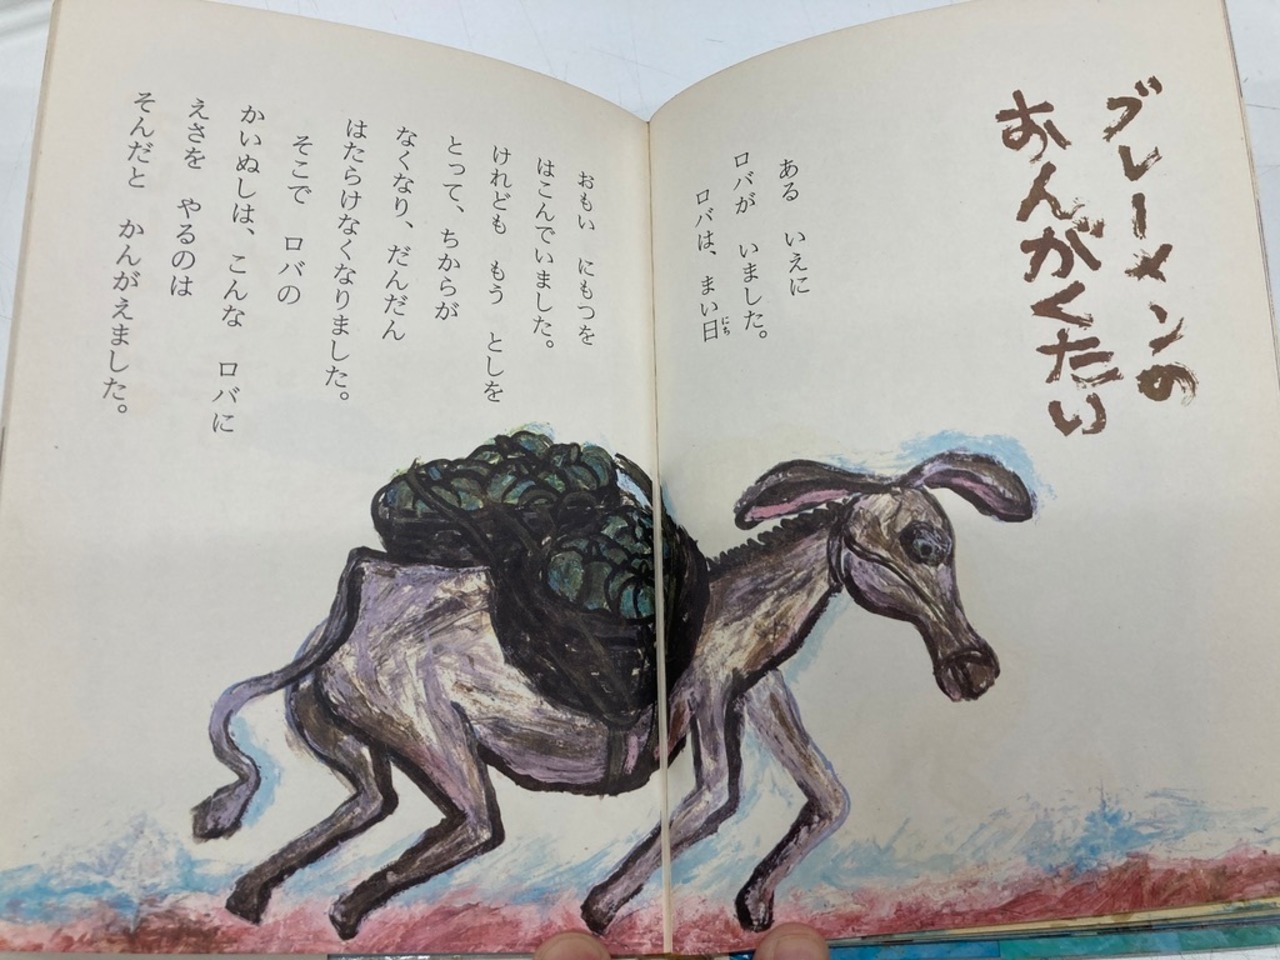 ブレーメンの
おんがくたい
ある いえに
ロバが いました。
ロバは、まい日にち
おもい にもつを
はこんでいました。
けれども もう としを
とって、ちからが
なくなり、だんだん
はたらけなくなりました。
そこで ロバの
かいぬしは、こんな ロバに
えさを やるのは
そんだと かんがえました。